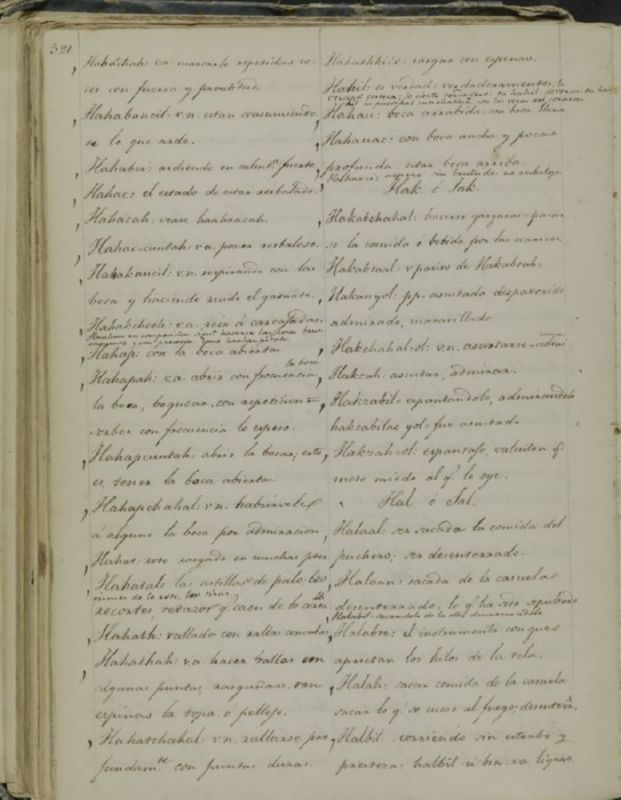 321.
Hahachah: va. marcarlo repetidas ve-
ces con fuerza y prontitud.
Hahabancil: v.n. estan consumiendo
se lo que arde.
Hahabci: ardiendo en calent.ª fuerte,
Hahac: el estado de estar resbaloso.
Hahacah. vease haahaacah.
Hahac-cuntah: va. poner resbaloso.
Hahakancil: v.n. respirando con la
boca y haciendo ruido el gaznate.
Hahakcheeh: va. reir á carcajadas.
Hahap: con la boca abierta.
la boca
Hahapah: va. abrir con frecuencia
la boca, boquear, con repeticion=
verber con frecuencia lo espeso.
Hahapcuntah: abrir la boca; esto
es, tener la boca abierta.
Hahapchahal: v.n. habiersele
á alguno la boca por admiracion,
Hahat: roto rasgado en muchas ptes
Hahatal: las astillas de palo, los
recortes, retazos q.e caen de lo
Hahath: rallado con rallas
Hahathah: va. hacer rallas con
algunas puntas, rasguñar con
espinas la ropa ó pellejo.
Hahathchahal: v.n. rallarse pro
fundam.te con puntas duras.
Hahathkiix: rasgar con espinas.
Hahil: es verdad: verdaderamente,
Hahau: boca arribida: con boca llana
Hahauac: con boca ancha y poca
profunda estar boca arriba.
Hak ó Jak.
Hakatchahal: hacerse gargaras: pasar
se la comida ó bebida por las narices.
Hakabtaal: v pasivo de Hakabtah.
Hakanyol: pp. asustado despavorido
admirado, maravillado.
Hakchahal-ol: v.n. asustarse-admi
Hakzah: asustar, admirar.
Hakzabil: espantandolo, admirandolo
hakzabilac yol: fue asustado
Hakzah-ol: espantajo, valenton q.e
mete miedo al q.e le oye.
Hal ó Jal.
Halaal: ser sacada la comida del
puchero: ser desenterrado.
Halaan: sacada de la casuela
desenterrado, lo q.e ha sido sepultado
Halabte: el instrumento con que
aprietan los hilos de la tela.
Halah: sacar comida de la casuela
sacar lo q.e se mete al fuego: desenterr.
Halbil. corriendo sin estorbo y
presteza: halbil u bin. va ligero.